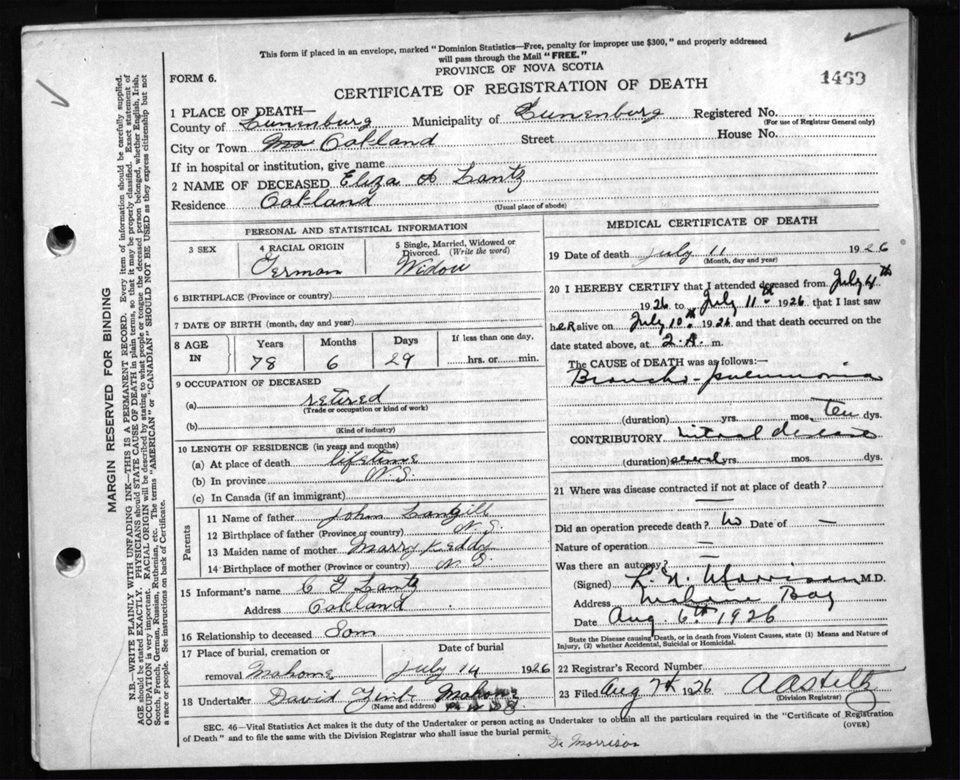 This form if placed in an envelope, marked "Dominion Statistics—Free, penalty for improper use $300," and properly addressed
will pass through the Mail "FREE."
PROVINCE OF NOVA SCOTIA
FORM 6.
CERTIFICATE OF REGISTRATION OF DEATH
1469
MARGIN RESERVED FOR BINDING
N.B.—WRITE PLAINLY WITH UNFADING INK—THIS IS A PERMANENT RECORD. Every item of information should be carefully supplied.
AGE should be stated EXACTLY. PHYSICIANS should STATE CAUSE OF DEATH in plain terms, so that it may be properly classified. Exact statement of
OCCUPATION is very important. RACIAL ORIGIN will be described by stating to what people or tongue the deceased person belonged, whether English, Irish,
Scotch, French, German, Russian, Ruthenian, etc. The terms "AMERICAN" or "CANADIAN" SHOULD NOT BE USED as they express citizenship but not
a race or people. See instructions on back of Certificate.
1 PLACE OF DEATH—
County of Lunenburg Municipality of Lunenburg Registered No.
(For use of Registrar General only)
City or Town Oakland Street House No.
If in hospital or institution, give name
2 NAME OF DECEASED Eliza A Lantz
Residence Oakland
(Usual place of abode)
PERSONAL AND STATISTICAL INFORMATION
3 SEX
4 RACIAL ORIGIN
German
5 Single, Married, Widowed or
Divorced. (Write the word)
Widow
6 BIRTHPLACE (Province or country)
7 DATE OF BIRTH (month, day and year)
8 AGE
IN
Years Months Days If less than one day,
78 6 29 hrs. or min.
9 OCCUPATION OF DECEASED
(a) retired
(Trade or occupation or kind of work)
(b)
(Kind of industry)
10 LENGTH OF RESIDENCE (in years and months)
(a) At place of death lifetime
(b) In province N S
(c) In Canada (if an immigrant)
Parents
11 Name of father John Langille
12 Birthplace of father (Province or country) N. S.
13 Maiden name of mother Marry Keddy
14 Birthplace of mother (Province or country) N S
15 Informant's name C G Lantz
Address Oakland
16 Relationship to deceased Son
17 Place of burial, cremation or
removal Mahone
Date of burial
July 14 1926
18 Undertaker David Mahone
(Name and address)
MEDICAL CERTIFICATE OF DEATH
19 Date of death July 11 1926
(Month, day and year)
20 I HEREBY CERTIFY that I attended deceased from July 4th
1926 to July 11th 1926 that I last saw
her alive on July 10th 1926 and that death occurred on the
date stated above, at 2. A. m.
The CAUSE OF DEATH was as follows:—
Broncho-pneumonia
(duration) yrs. mos. ten dys.
CONTRIBUTORY mitral disease
(duration) several yrs. mos. dys.
21 Where was disease contracted if not at place of death?
—
Did an operation precede death? No Date of —
Nature of operation —
Was there an autopsy? —
(Signed) Morrison M.D.
Address Mahone Bay
Date Aug. 6th 1926
State the Disease causing Death, or in death from Violent Causes, state (1) Means and Nature of
Injury, (2) whether Accidental, Suicidal or Homicidal.
22 Registrar's Record Number
23 Filed Aug 7th 1926
(Division Registrar)
SEC. 46—Vital Statistics Act makes it the duty of the Undertaker or person acting as Undertaker to obtain all the particulars required in the "Certificate of Registration
of Death" and to file the same with the Division Registrar who shall issue the burial permit.
(OVER)
Dr Morrison